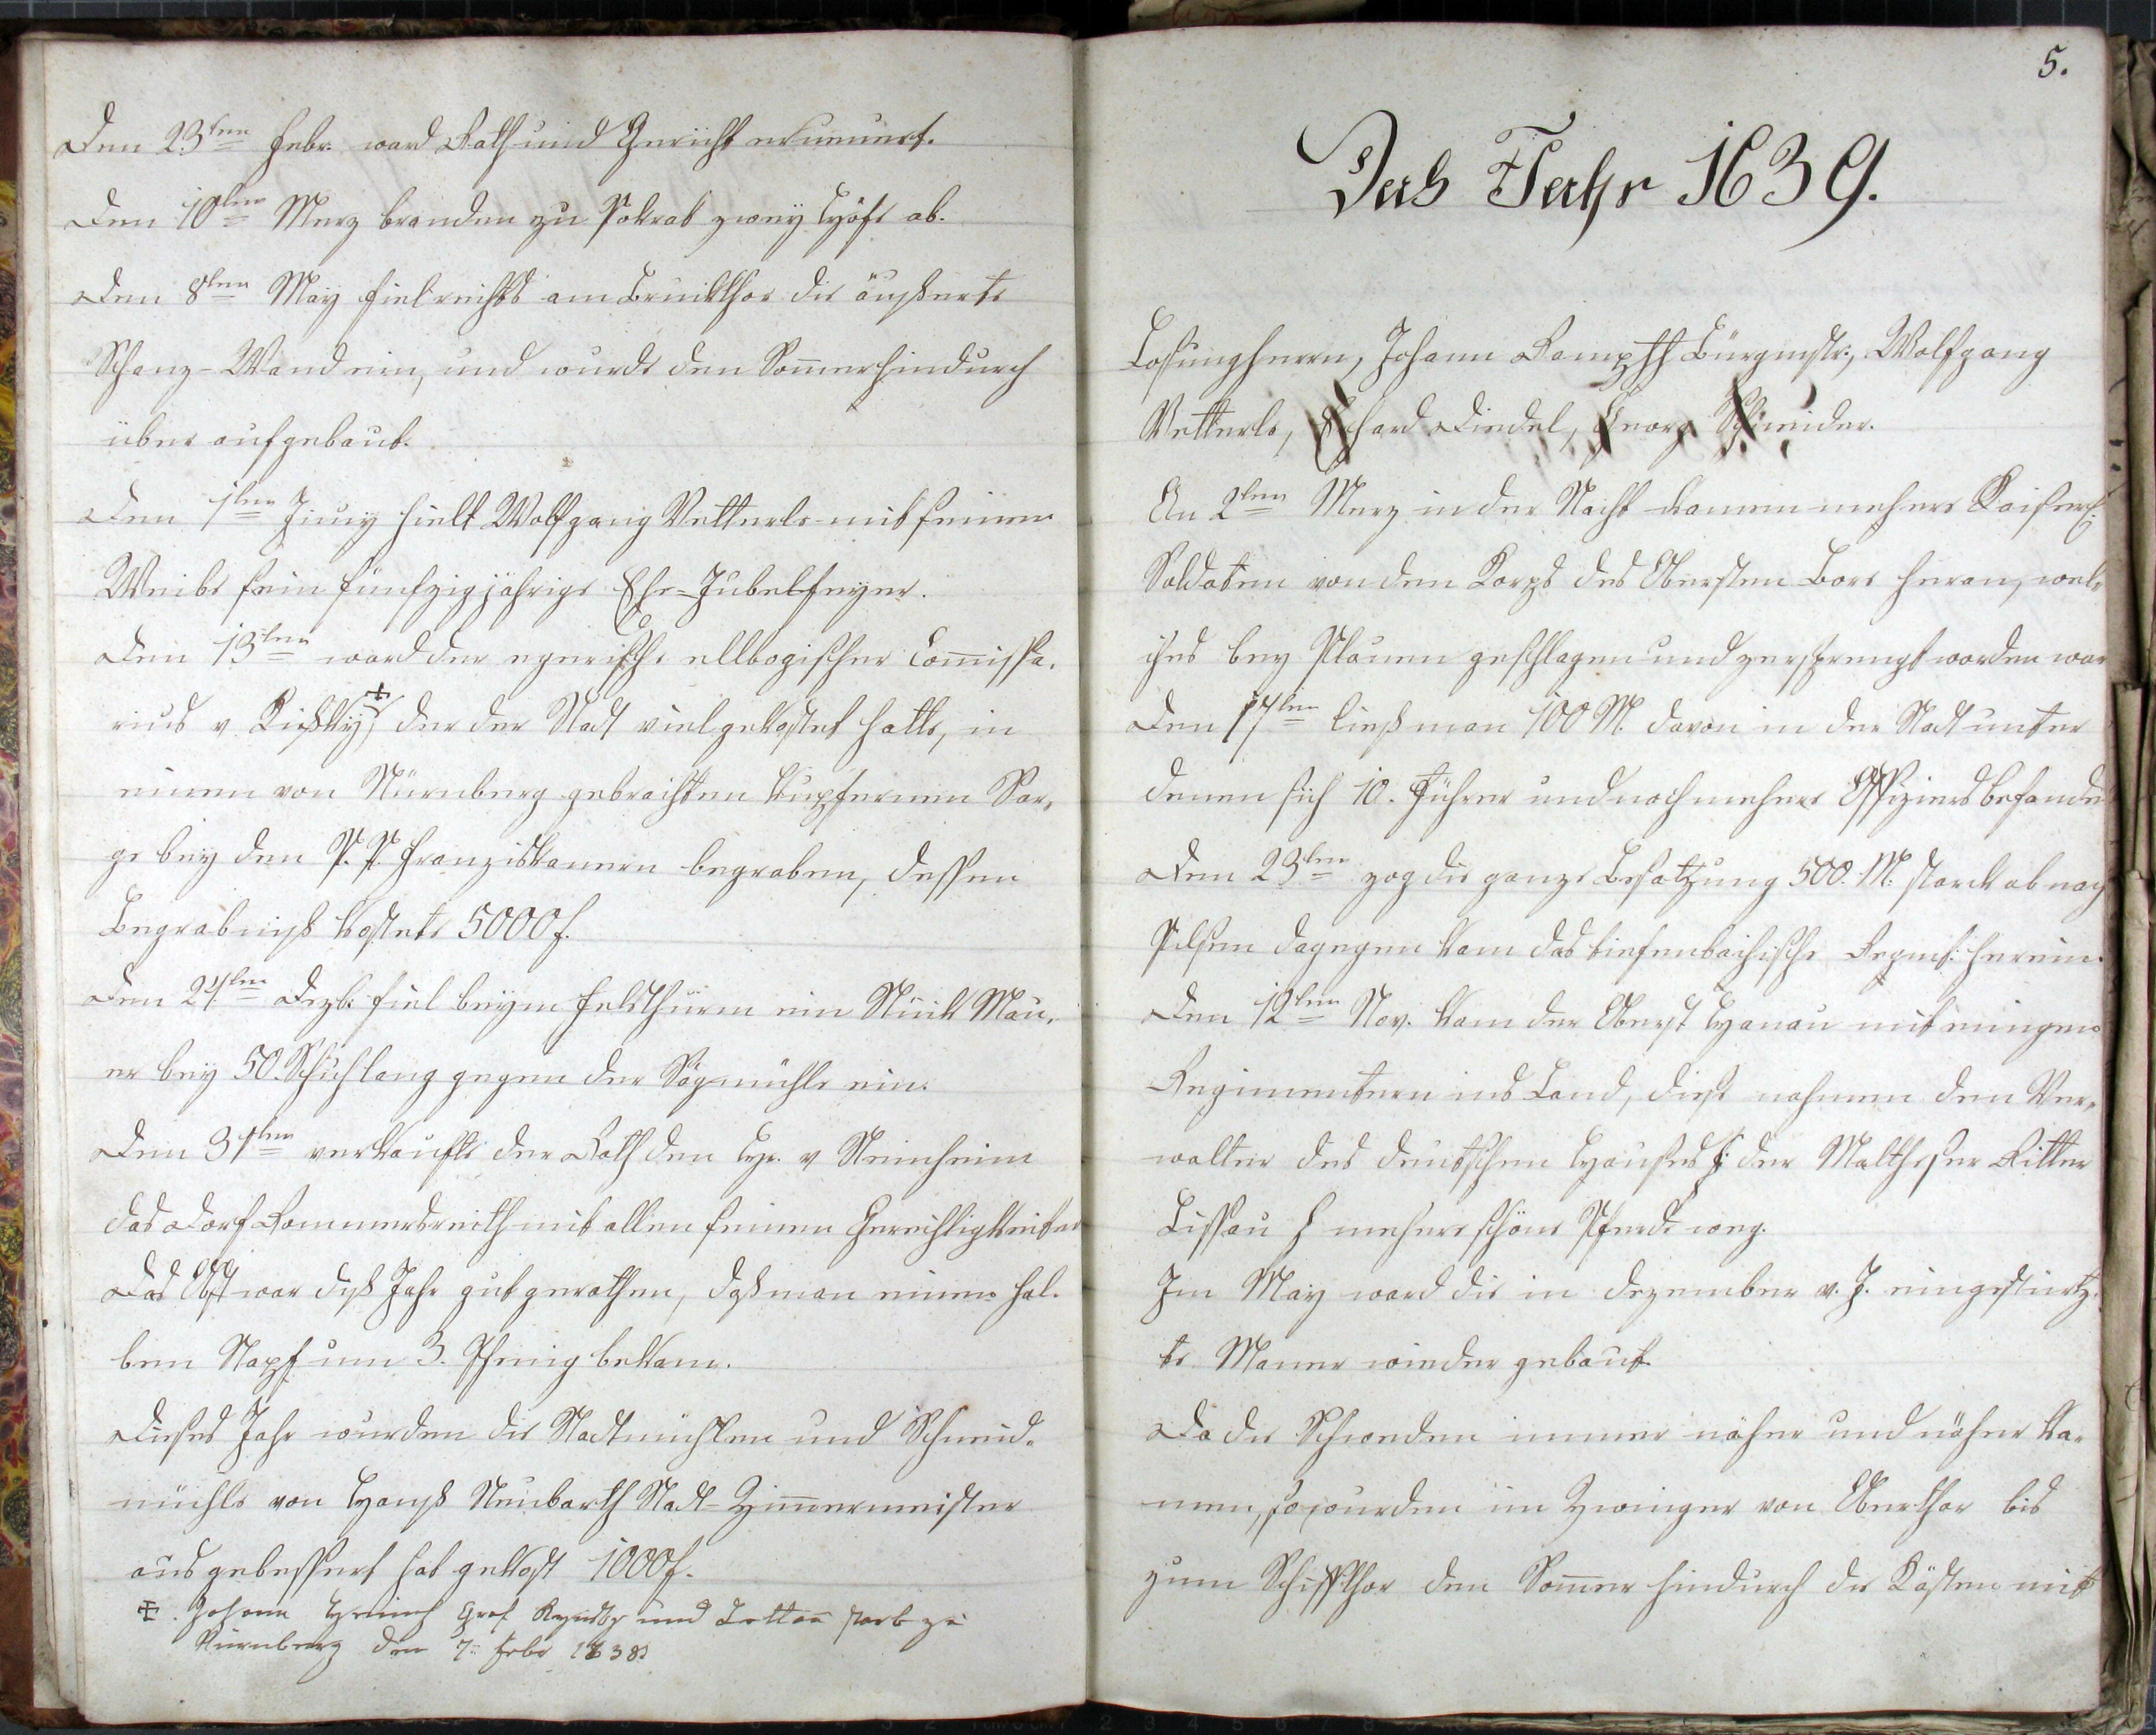 Den 23ten Febr. ward Rath und Gericht erneuert.
Den 10ten Merz branden zu Sokrat zweÿ Höfe ab.
Den 8ten Maÿ fiel rechts am Bruckthor die äußerte
Schanz-Wand ein, und wurde den Som̄er hindurch
über aufgebaut.
Den 1ten Junÿ hielt Wolfgang Vetterle mit seinem
Weibe sein fünfzigjährige Ehe-Jubelfeyer.
Den 13ten ward der egerische ellbogischer Com̄issa-
rius v. ‡) der der Stadt viel gekostet hatte, in
einem von Nürnberg gebrachten kupfernen Sar-
ge beÿ den P. P. Franziskanern begraben, dessen
Begrabniß kostete 5000 f.
Den 24ten Dezb. fiel beÿm Feldthurm ein Stück Mau-
er beÿ 50. Schuh lang gegen der Sägmühle ein.
Den 31ten verkaufte der Rath den Hr. v
das Dorf Rommersreith mit allen seinen Gerechtigkeiten
Das Obst war dieß Jahr gut gerathen, daß man einen hal-
ben Napf um 3. Pfenig bekam.
Dieses Jahr wurden die Stadtmühlen und Schneid-
mühle von Hanß Neubarth Stadt-Zim̄ermeister
ausgebessert hat gekost 1000 f.
‡. Johann Heinrich Graf und starb zu
Nürnberg den 7. Febr 1638
5.
Das Jahr 1639.
Losungherrn, Johann Rampff Bürgmstr:, Wolfgang
Vetterle, Erhard Diedel, Georg Schneider.
An 2ten Merz in der Nacht kamen mehere Kaiserl:
Soldaten von dem Korps des Obersten Bore heran, wel-
ches bey Plauen geschlagen und zersprengt worden war
Den 17ten ließ man 100 M. davon in der Stadt unter
denen sich 10. Führer und noch mehere Offiziers befanden
Den 23ten zog die ganze Besatzung 500. M. stark ab nach
Pilsen dagegen kam das tiefenbachische Regmt: herein.
Den 12ten Nov. kam der Oberst Hanau mit einigen
Regimentern ins Land, diese nahmen dem Ver-
walter des deutschen Hauses /: der Maltheser Ritter
Lissau :/ mehere schöne Pferde weg.
Im May ward die in Dezember v. J. eingestürtz-
te Mauer wieder gebaut.
Da die Schweden immer näher und näher ka-
men, so wurden im Zwinger von Oberthor bis
zum Schiffthor den Som̄er hindurch die Kästen mit